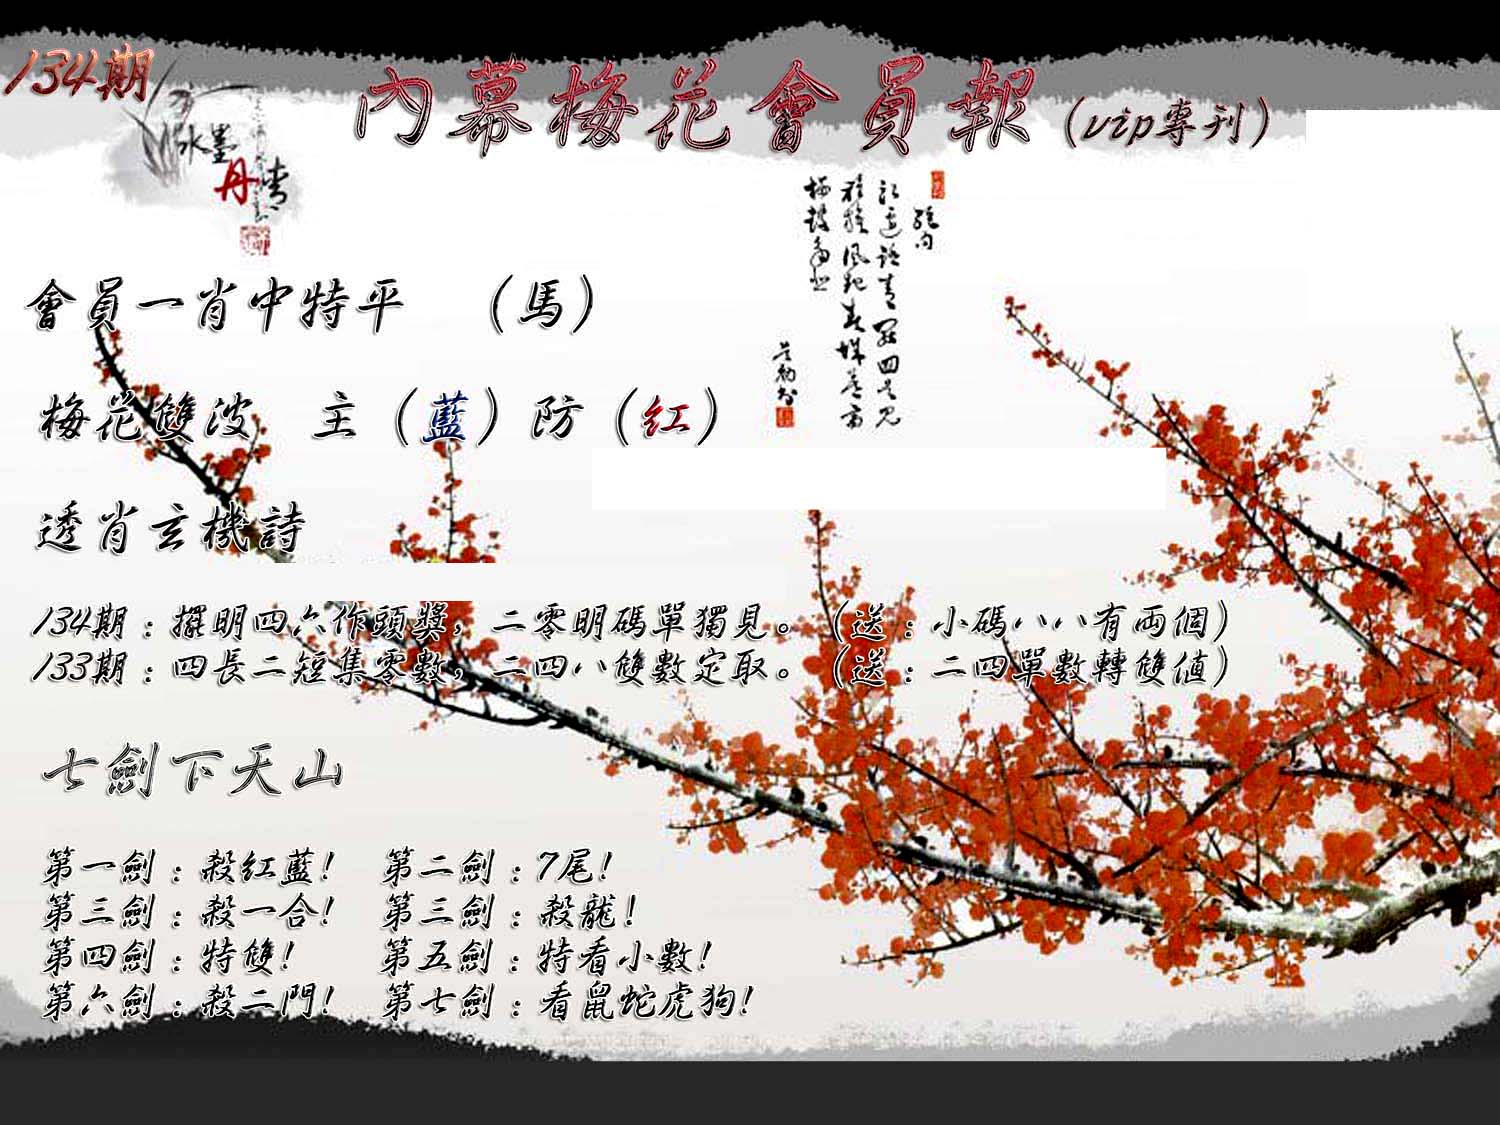 134期
內幕梅花會員報(vip專刊)
水墨
丹青
會員一肖中特平 (馬)
梅花雙波 主(藍)防(紅)
透肖玄機詩
134期:擺明四六作頭獎,二零明碼單獨見。(送:小碼八八有兩個)
133期:四長二短集零數,二四八雙數定取。(送:二四單數轉雙值)
七劍下天山
第一劍:殺紅藍! 第二劍:7尾!
第三劍:殺一合! 第三劍:殺龍!
第四劍:特雙! 第五劍:特看小數!
第六劍:殺二門! 第七劍:看鼠蛇虎狗!